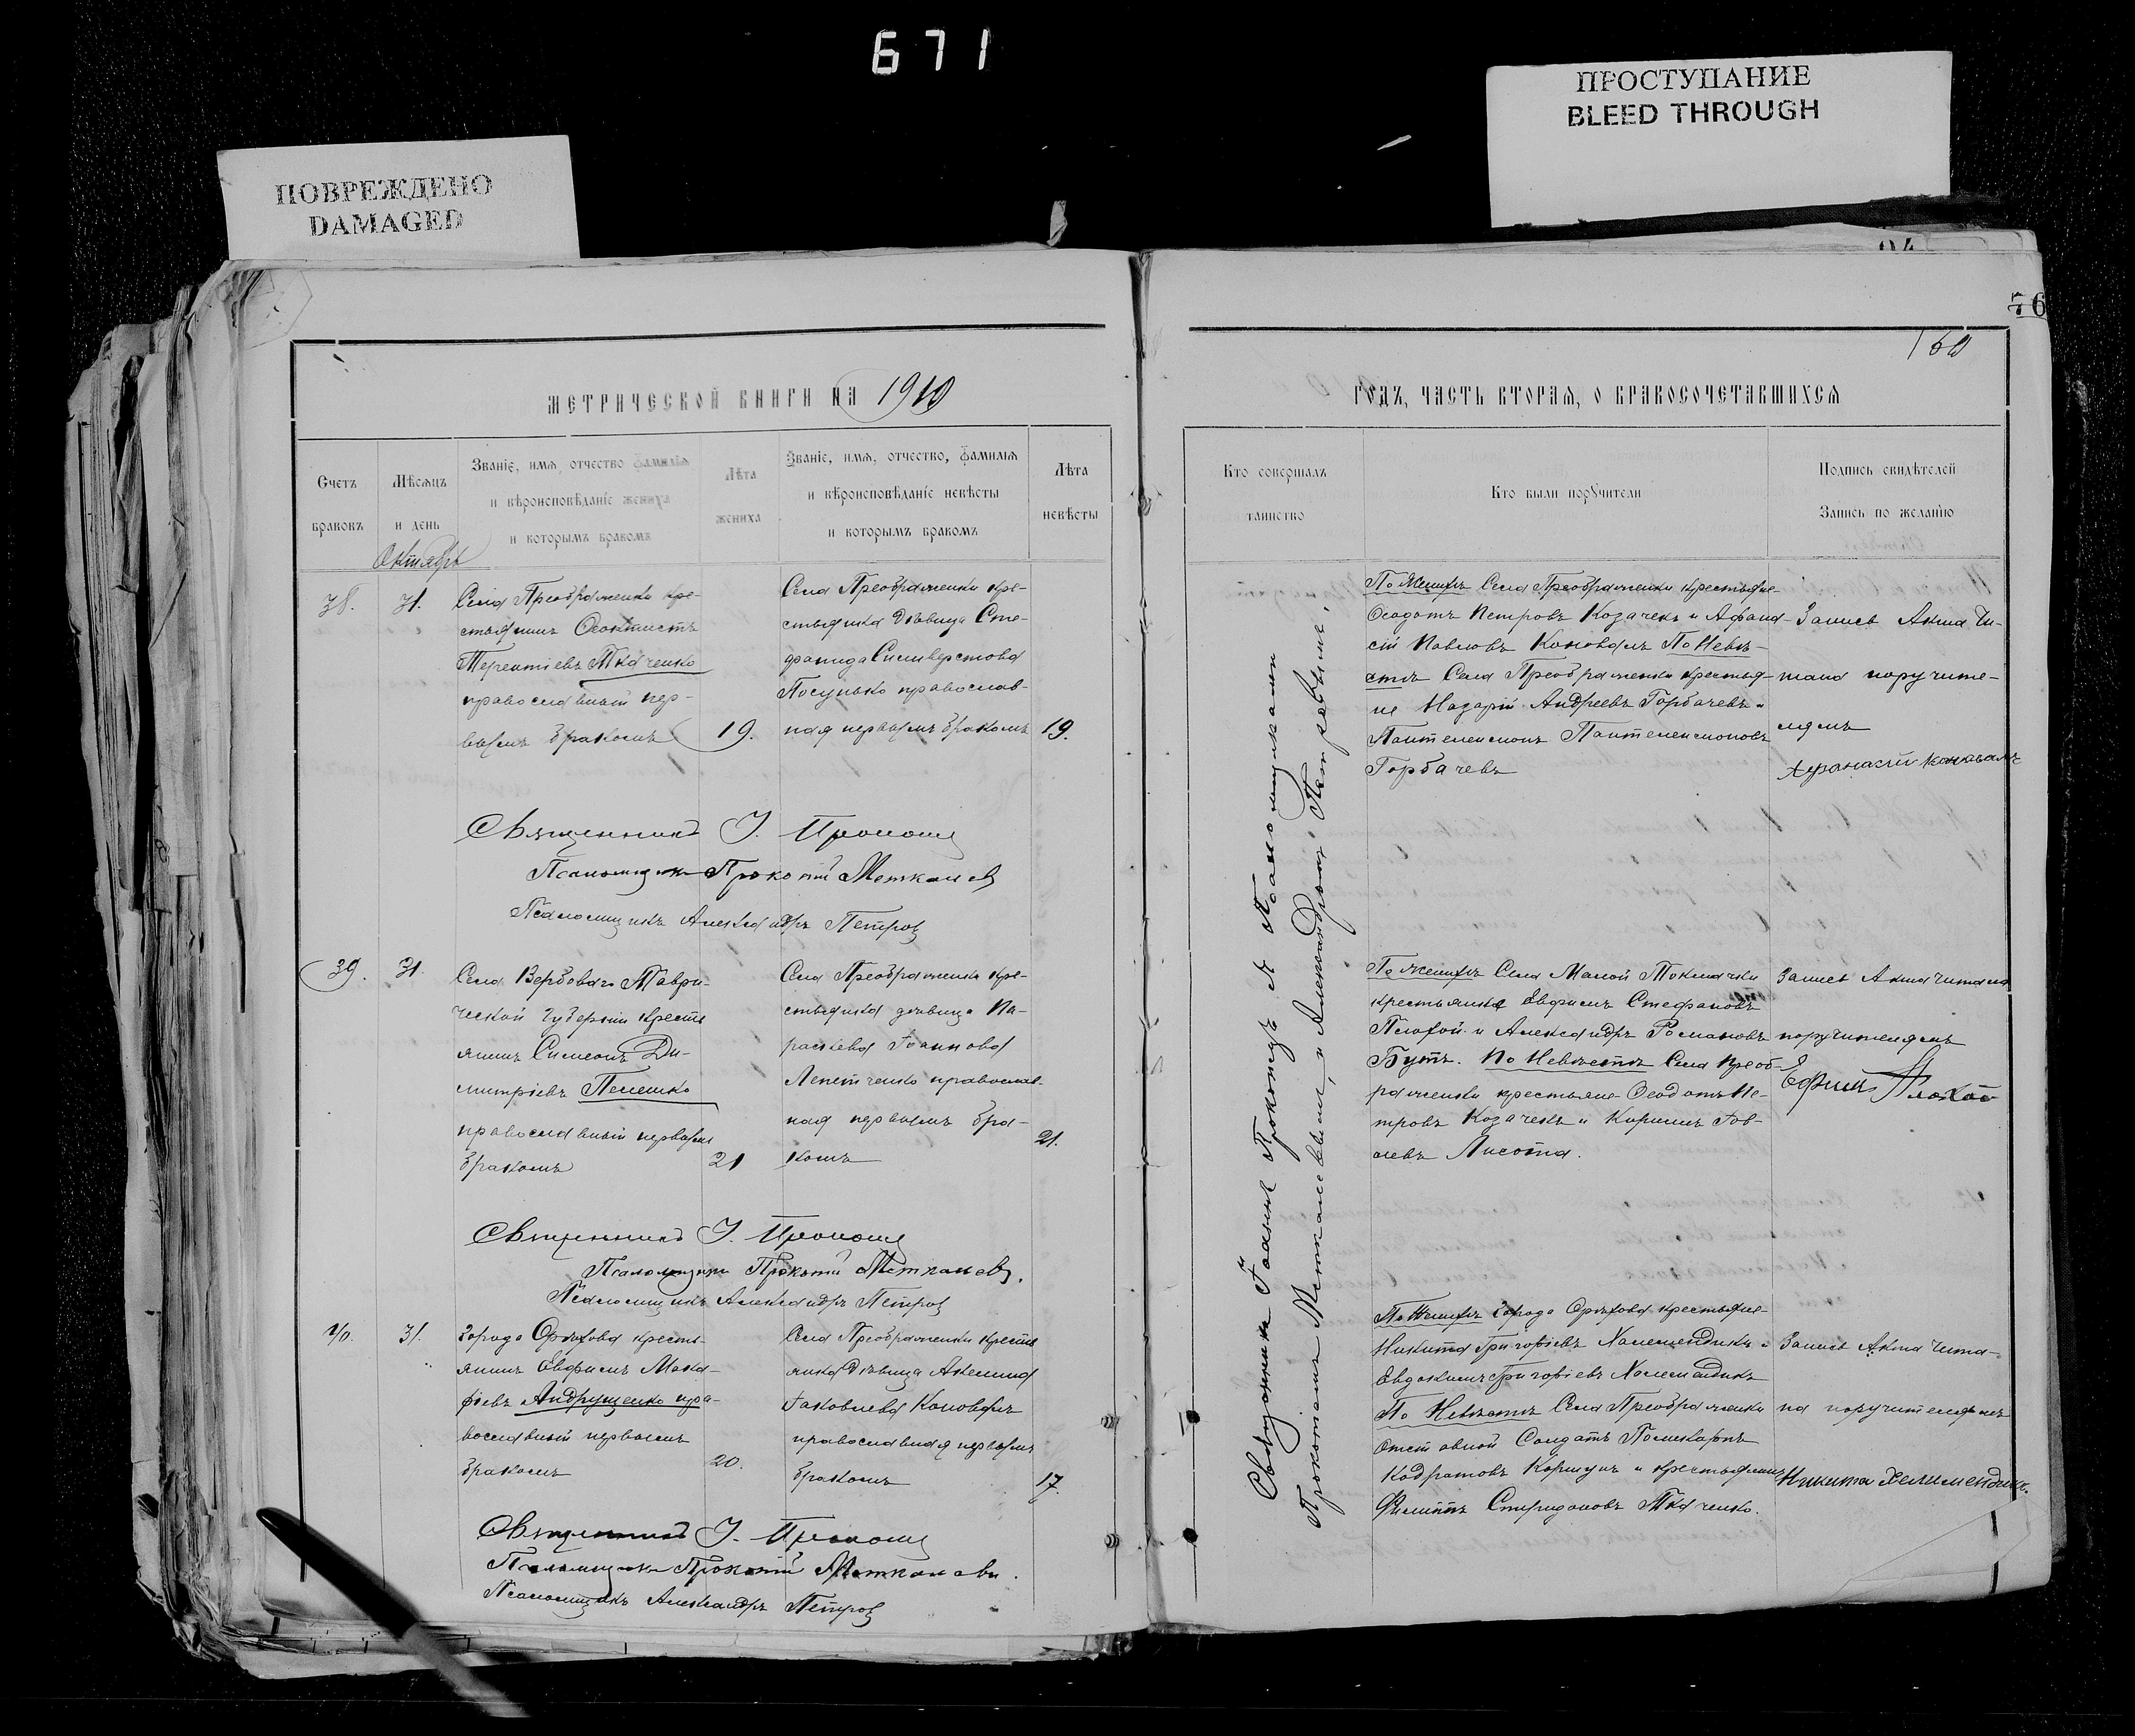 671
ПРОСТУПАНИЕ
BLEED THROUGH
ПОВРЕЖДЕНО
DAMAGED
76
160
МЕТРИЧЕСКОЙ КНИГИ НА 1910
ГОДЪ, ЧАСТЬ ВТОРАЯ, О БРАКОСОЧЕТАВШИХСЯ
Счетъ браковъ
Мѣсяцъ и день
Званіе, имя, отчество фамилія
и вѣроисповѣданіе жениха
и которымъ бракомъ
Лѣта жениха
Званіе, имя, отчество, фамилія
и вѣроисповѣданіе невѣсты
и которымъ бракомъ
Лѣта невѣсты
Кто совершалъ таинство
Кто были поручители
Подпись свидѣтелей
Запись по желанію
Октябрь
38.
31.
Села Преображенки кре-
стьянинъ Ѳеоктистъ
Терентіевъ Ткаченко
православный пер-
вымъ бракомъ
19.
Села Преображенки кре-
стьянка дѣвица Сте-
фанида Силиверстова
православ-
ная первымъ бракомъ
19.
По Женихѣ Села Преображенки крестьяне
Ѳеодотъ Петровъ Козачекъ и Афана-
сій Павловъ Коновалъ По Невѣ-
стѣ Села Преображенки крестья-
не Назарій Андреевъ Горбачевъ и
Пантелеимонъ Пантелеимоновъ
Горбачевъ
Запись Акта Чи-
тана поручите-
лямъ
Афанасій Коновалъ
Священникъ І.
Псаломщикъ Прокопій Меткалевъ
Псаломщикъ Александръ Петровъ
39.
31.
Села Вербоваго Таври-
ческой Губерніи кресть
янинъ Симеонъ Ди-
митріевъ Пелешко
православный первымъ
бракомъ
21
Села Преображенки кре-
стьянка дѣвица Па-
раскева Іоаннова
Лепетченко православ-
ная первымъ бра-
комъ
21.
По Женихѣ Села Малой Токмачки
крестьяне Евфимъ Стефановъ
Плохой и Александръ Романовъ
Бутъ. По Невѣстѣ Села Преоб-
раженки крестьяне Ѳеодотъ Пе-
тровъ Козачекъ и Кириллъ Іов-
левъ Лисота.
Запись Акта читана
поручителямъ
Ефимъ Плохой
Священникъ І.
Псаломщикъ Прокопій Меткалевъ.
Псаломщикъ Александръ Петровъ
40.
31.
Города Орѣхова кресть-
янинъ Евфимъ Мака-
ріевъ Андрущенко пра-
вославный первымъ
бракомъ
20.
Села Преображенки кресть
янка дѣвица Акелина
Іаковлева Коновалъ
православная первымъ
бракомъ
17.
По Женихѣ Города Орѣхова крестьяне
Никита Григоріевъ Халемендикъ и
Евдокимъ Григоріевъ Халемендикъ
По Невѣстѣ Села Преображенки
Отставной Солдатъ Поликарпъ
Кодратовъ Коршунъ и крестьянинъ
Филиппъ Спиридоновъ Ткаченко.
Запись Акта чита-
на поручителямъ
Никита Хелимендикъ.
Священникъ І.
Псаломщикъ Прокопій Меткалевъ.
Псаломщикъ Александръ Петровъ
Священник Іоаннъ съ Псаломщиками
Прокопіемъ Меткалевымъ, и Александромъ Петровымъ.